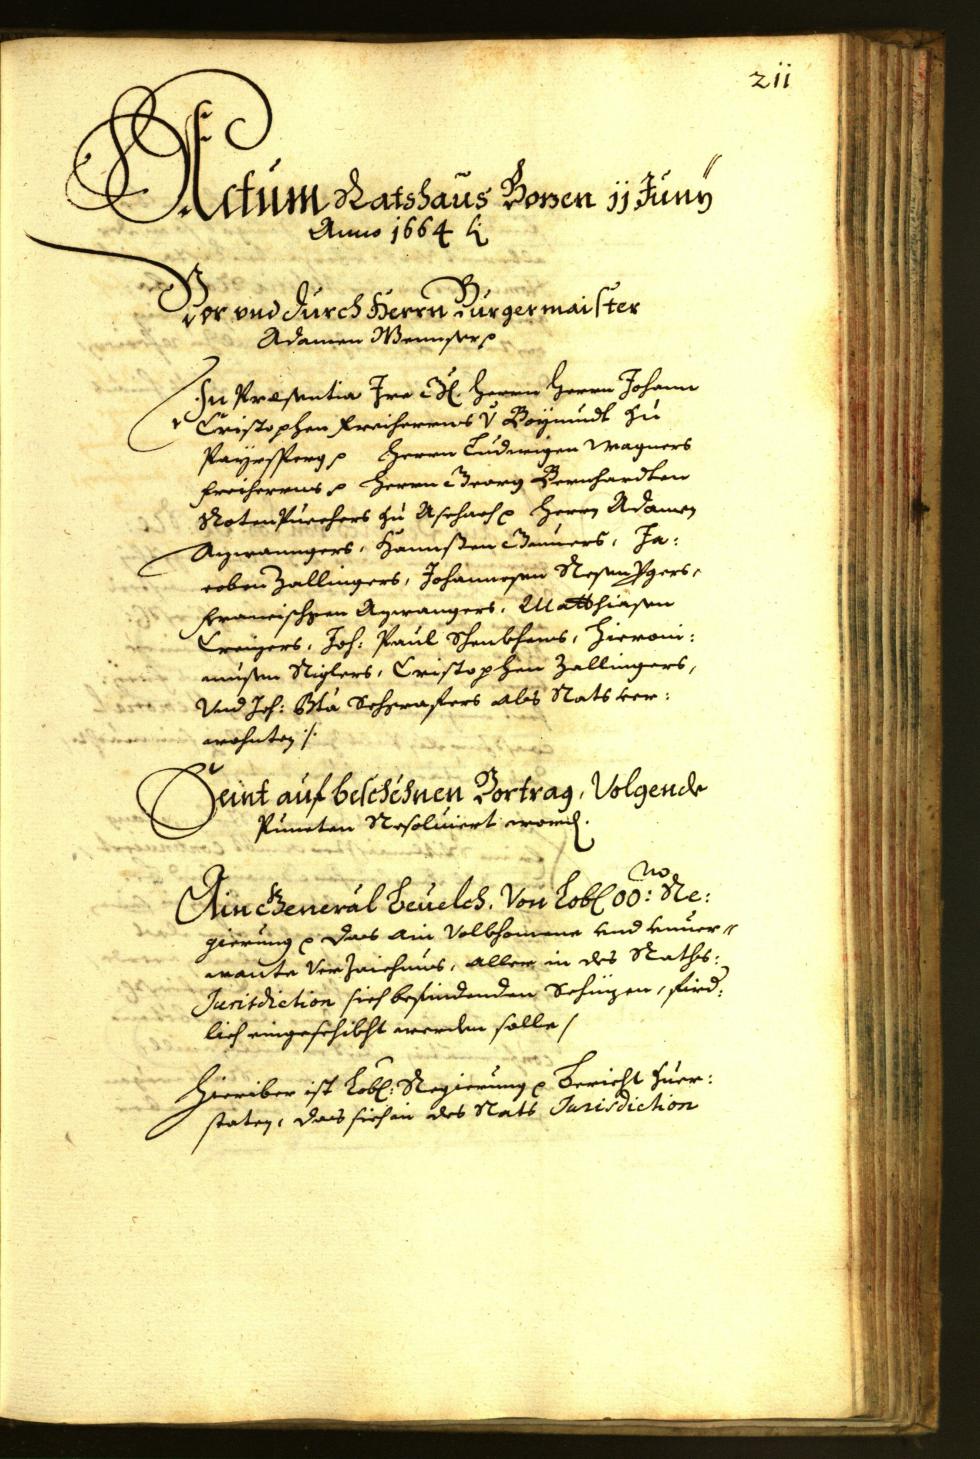 211
Actum Ratshaus Bozen 11 Juny
Anno 1664
Vor vnd durch Herrn Burgermaister
Adamen Wennser
In Præsentia Ire Gl. Herrn Herrn Johann
Cristophen Freiherrns V Boymundt zu
Payrsperg Herrn Ludwigen Wagners
Freiherrns Herrn Georg Bernhardten
Rotenpuechers zu Aschach Herrn Adamen
Azwanngers, Hannsen Gumers, Ja:
coben Zallingers, Johannesen
Francischgen Azwangers, Matthiasen
Creizers, Joh: Paul Schenkhens, Hieroni:
musen Riglers, Cristophen Zallingers,
Vnd Joh: Bta Schgrafers als Rats ver:
wohnten /:
Seint auf beschechnen Vortrag, Volgende
Puncten Resoluiert word.
Ain General Beuelch, Von Lobl OO: No Re:
gierung das ain Volkhomene vnd
Verzaichnus, aller in des Raths:
Jurisdiction sich befindenden Schüzen, fird:
lich eingeschikht werden solle /
Hieriber ist Lobl: Regierung Bericht zuer:
staten, das sich in des Rats Jurisdiction